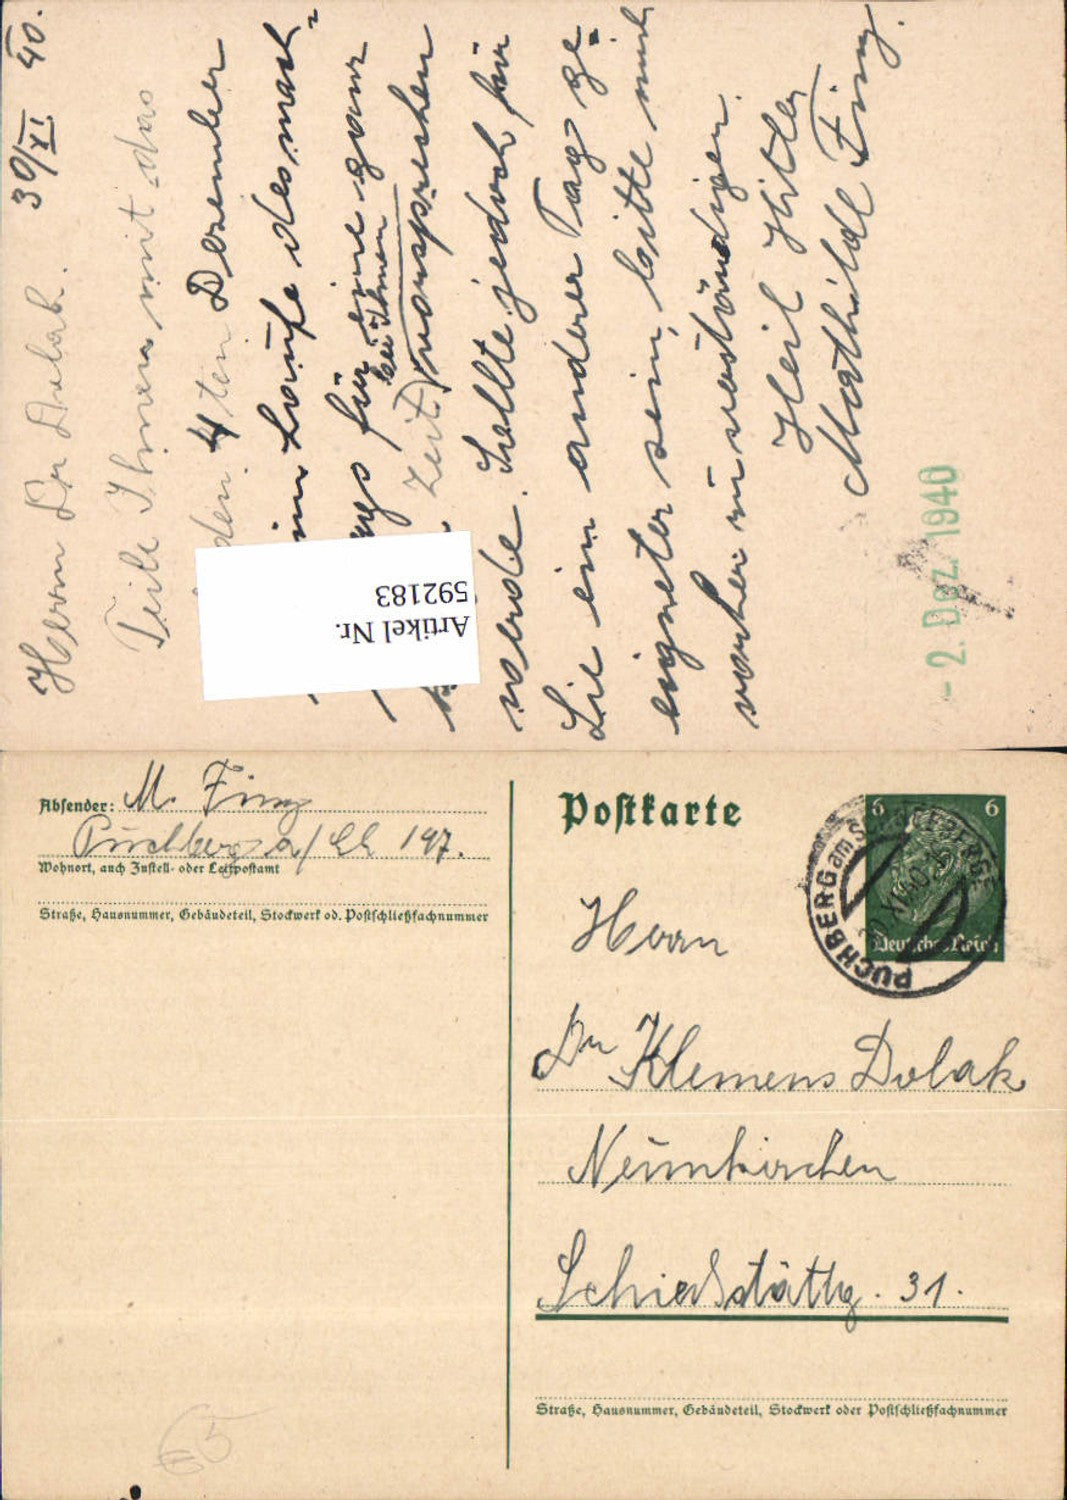 30/XI 40.
Herrn Dr Dolak.
Teile Ihnen mit das
den 4ten Dezember
im Laufe des nach=
für eine ganz
bei Ihnen
Zeit vorsprechen
werde. Sollte jedoch für
Sie ein anderer Tag ge=
eigneter sein, bitte mich
vorher zu verständigen.
Heil Hitler
Mathilde Finz.
- 2. Dez. 1940
Artikel Nr.
592183
Absender: M. Finz
Puchberg a/ Sch 197.
Wohnort, auch Zustell- oder Leitpostamt
Straße, Hausnummer, Gebäudeteil, Stockwerk od. Postschließfachnummer
Postkarte
6 6
Deutsches Reich
PUCHBERG am SCHNEEBERGE
Herrn
Dr Klemens Dolak
Neunkirchen
Schießstättg. 31.
Straße, Hausnummer, Gebäudeteil, Stockwerk oder Postschließfachnummer
65